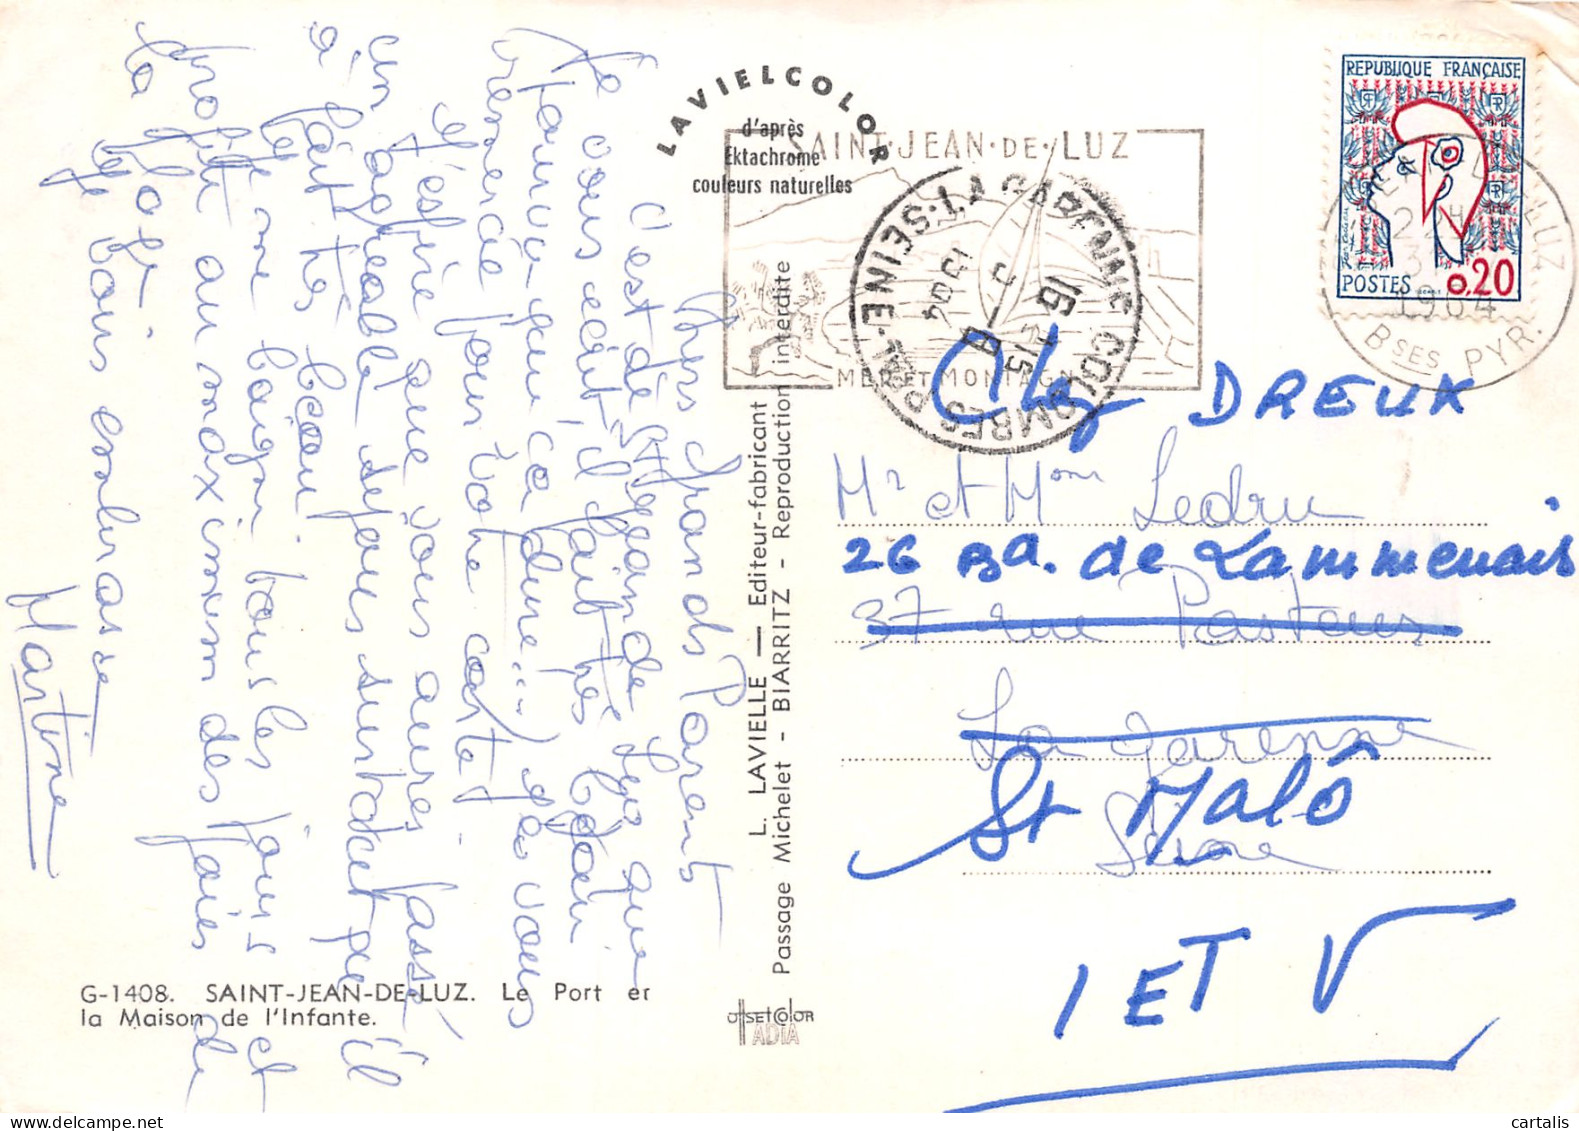 Chers grands Parents
C'est de St Jean de Luz que
je vous écrit, il fait très beau
(pourvu que ça dure!...) je vous
remercie pour votre carte
J'espère que vous aurez passé
un agréable séjour surtout qu'il
a fait très beau.
Je me baigne tous les jours et
profite au maximum des joies de
la plage.
Je vous embrasse
Martine
G-1408. SAINT-JEAN-DE-LUZ. Le Port et
la Maison de l'Infante.
LAVIELCOLOR
d'après
Ektachrome
couleurs naturelles
L. LAVIELLE — Editeur-fabricant
Passage Michelet - BIARRITZ - Reproduction interdite
OFFSET COLOR
ADIA
SAINT·JEAN·DE·LUZ
MER ET MONTAGNE
LA GARENNE COLOMBES PPAL-SEINE
16
1964
REPUBLIQUE FRANÇAISE
POSTES 0,20
LUZ
1964
BSES PYR.
Chez DREUX
Mr et Mme Ledru
26 Bd. de Lammenais
37 rue Pasteur
La Garenne
St Malô
Seine
I ET V
cartalis